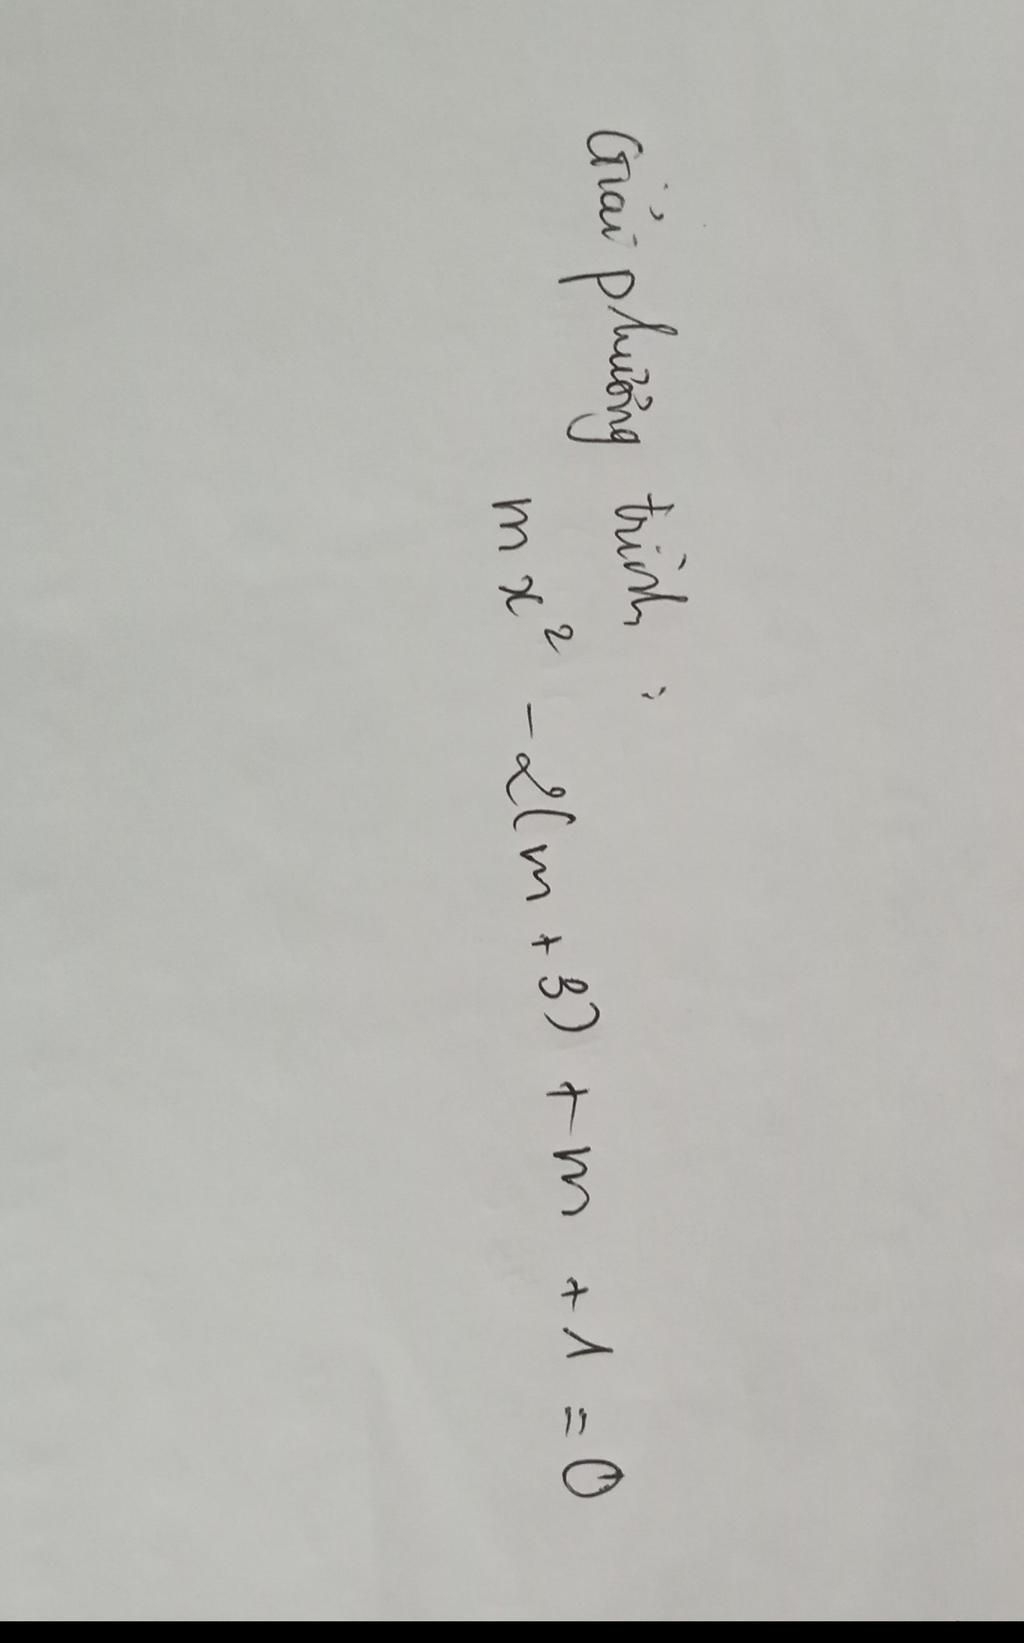 Giải phương trình :
mx² - 2(m + 3) + m + 1 = 0